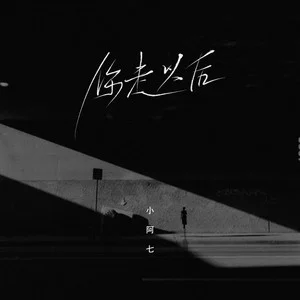 你走以后
小阿七